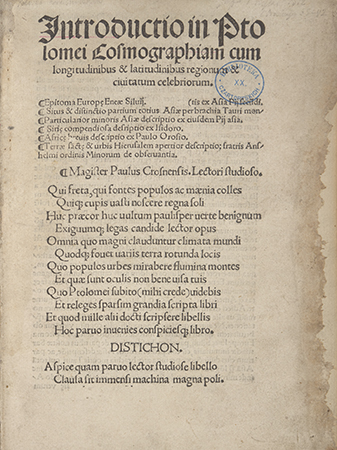 Introductio in Pto
lomei Cosmographiam cum
longitudinibus & latitudinibus regionum &
ciuitatum celebriorum.
BIBLIOTEKA
XX.
CZARTORYSKICH
¶Epitoma Europę Eneę Siluij.
¶Situs & distinctio partium totius Asię per brachia Tauri mon-
tis ex Asia Pij secūdi.
¶Particularior minoris Asię descriptio ex eiusdem Pij asia.
¶Sirię compendiosa descriptio ex Isidoro.
¶Africę breuis descriptio ex Paulo Orosio.
¶Terrę sctę & urbis Hierusalem apertior descriptio; fratris An-
shelmi ordinis Minorum de obseruantia.
¶Magister Paulus Crosnensis. Lectori studioso.
Qui freta, qui fontes populos ac mœnia colles
Quiq; cupis uasti noscere regna soli
Huc præcor huc uultum paulisper uerte benignum
Exiguumq; legas candide lector opus
Omnia quo magni clauduntur climata mundi
Quodq; fouet uarijs terra rotunda locis
Quo populos urbes mirabere flumina montes
Et quæ sunt oculis non bene uisa tuis
Quo Ptolomei subito (mihi crede) uidebis
Et releges sparsim grandia scripta libri
Et quod mille alij docti scripsere libellis
Hoc paruo inuenies conspiciesq; libro.
DISTICHON.
Aspice quam paruo lector studiose libello
Clausa sit immensi machina magna poli.